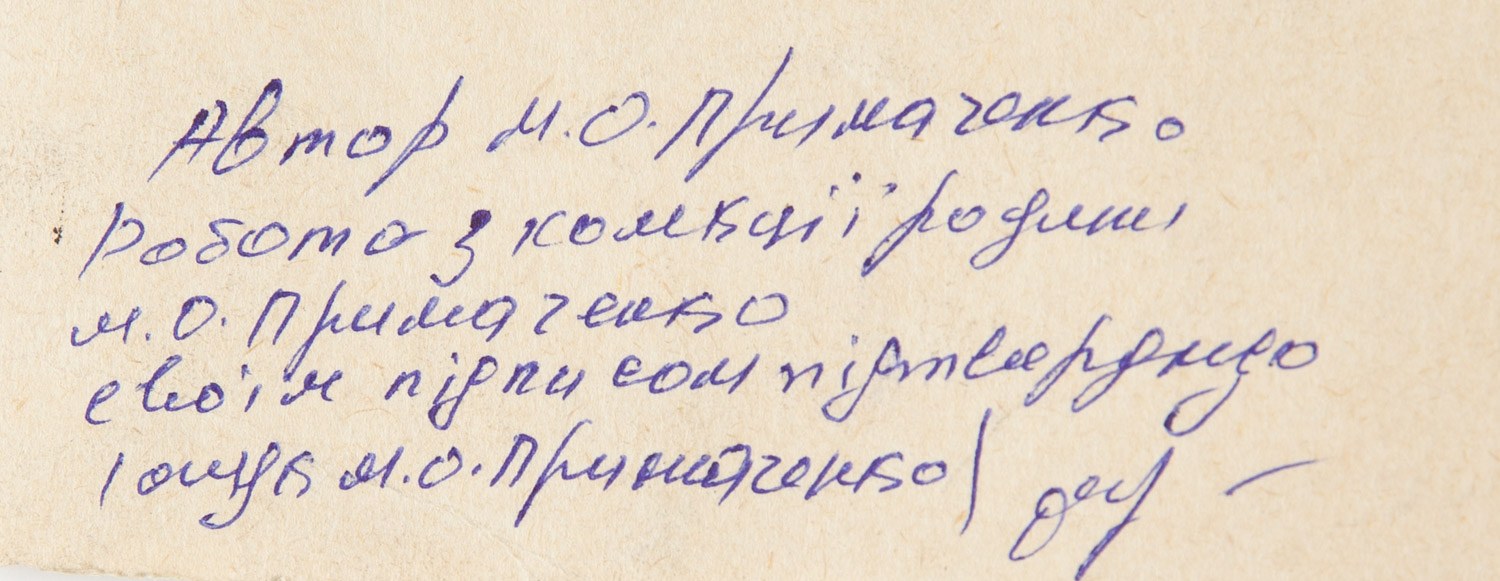 Автор М.О.Примаченко
Робота з колекції родини
М.О.Примаченко
своїм підписом підтверджую
/онук М.О.Примаченко/